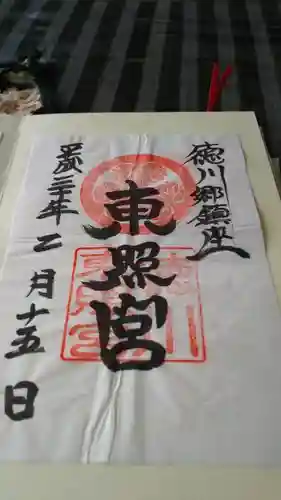 徳川郷鎮座
東照宮
平成三十年二月十五日
徳川
東照宮